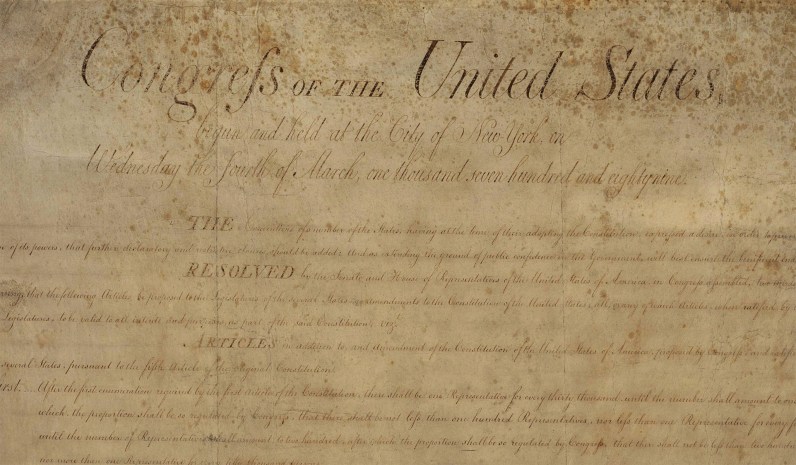 Congress OF THE United States,
begun and held at the City of New York, on
Wednesday the fourth of March, one thousand seven hundred and eighty nine.
THE Conventions of a number of the States, having at the time of their adopting the Constitution, expressed a desire, in order to prevent
of its powers, that further declaratory and restrictive clauses should be added: And as extending the ground of public confidence in the Government, will best ensure the beneficent ends
RESOLVED by the Senate and House of Representatives of the United States of America, in Congress assembled, two thirds
that the following Articles be proposed to the Legislatures of the several States, as amendments to the Constitution of the United States, all, or any of which Articles, when ratified by
Legislatures, to be valid to all intents and purposes, as part of the said Constitution; vizt.
ARTICLES in addition to, and Amendment of the Constitution of the United States of America, proposed by Congress, and ratified
several States, pursuant to the fifth Article of the original Constitution.
After the first enumeration required by the first Article of the Constitution, there shall be one Representative for every thirty thousand, until the number shall amount to one
which, the proportion shall be so regulated by Congress, that there shall be not less than one hundred Representatives, nor less than one Representative for every
until the number of Representatives shall amount to two hundred, after which the proportion shall be so regulated by Congress, that there shall not be less than two hundred
nor more than one Representative for every fifty thousand persons.